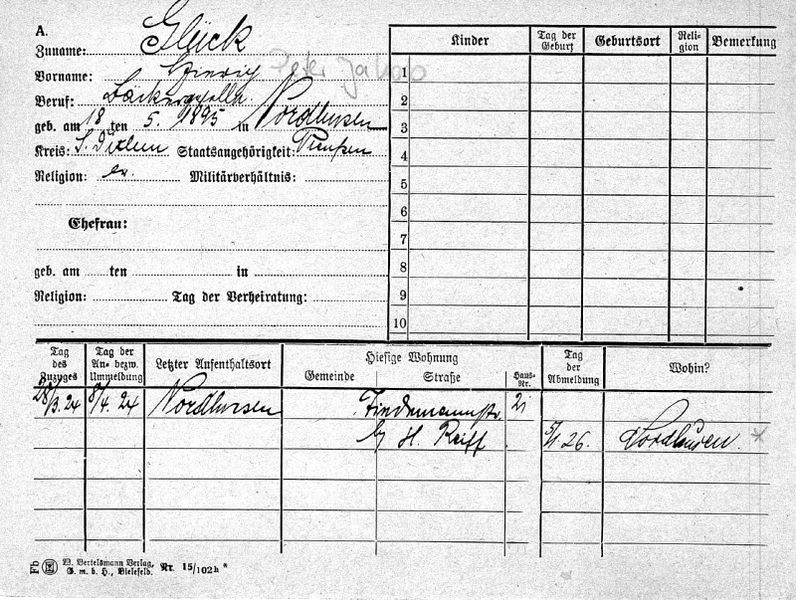 A.
Zuname: Glück
Vorname: Peter Jakob
Beruf: Bäckergeselle
geb. am 18 ten 5. 1895 in Nordhusen
Kreis: S. Staatsangehörigkeit: Preußen
Religion: ev. Militärverhältnis:
Ehefrau:
geb. am ten in
Religion: Tag der Verheiratung:
Kinder Tag der Geburt Geburtsort Religion Bemerkung
1
2
3
4
5
6
7
8
9
10
Tag des Zuzuges Tag der An- bezw. Ummeldung Letzter Aufenthaltsort Hiesige Wohnung Tag der Abmeldung Wohin?
Gemeinde Straße Haus-Nr.
28/3.24 8/4. 24 Nordhusen Tiedemannstr. 21
bei H. Reiff 5/1 26. Nordhausen. *
Fb W. Bertelsmann Verlag,
G. m. b. H., Bielefeld. Nr. 15/102h*